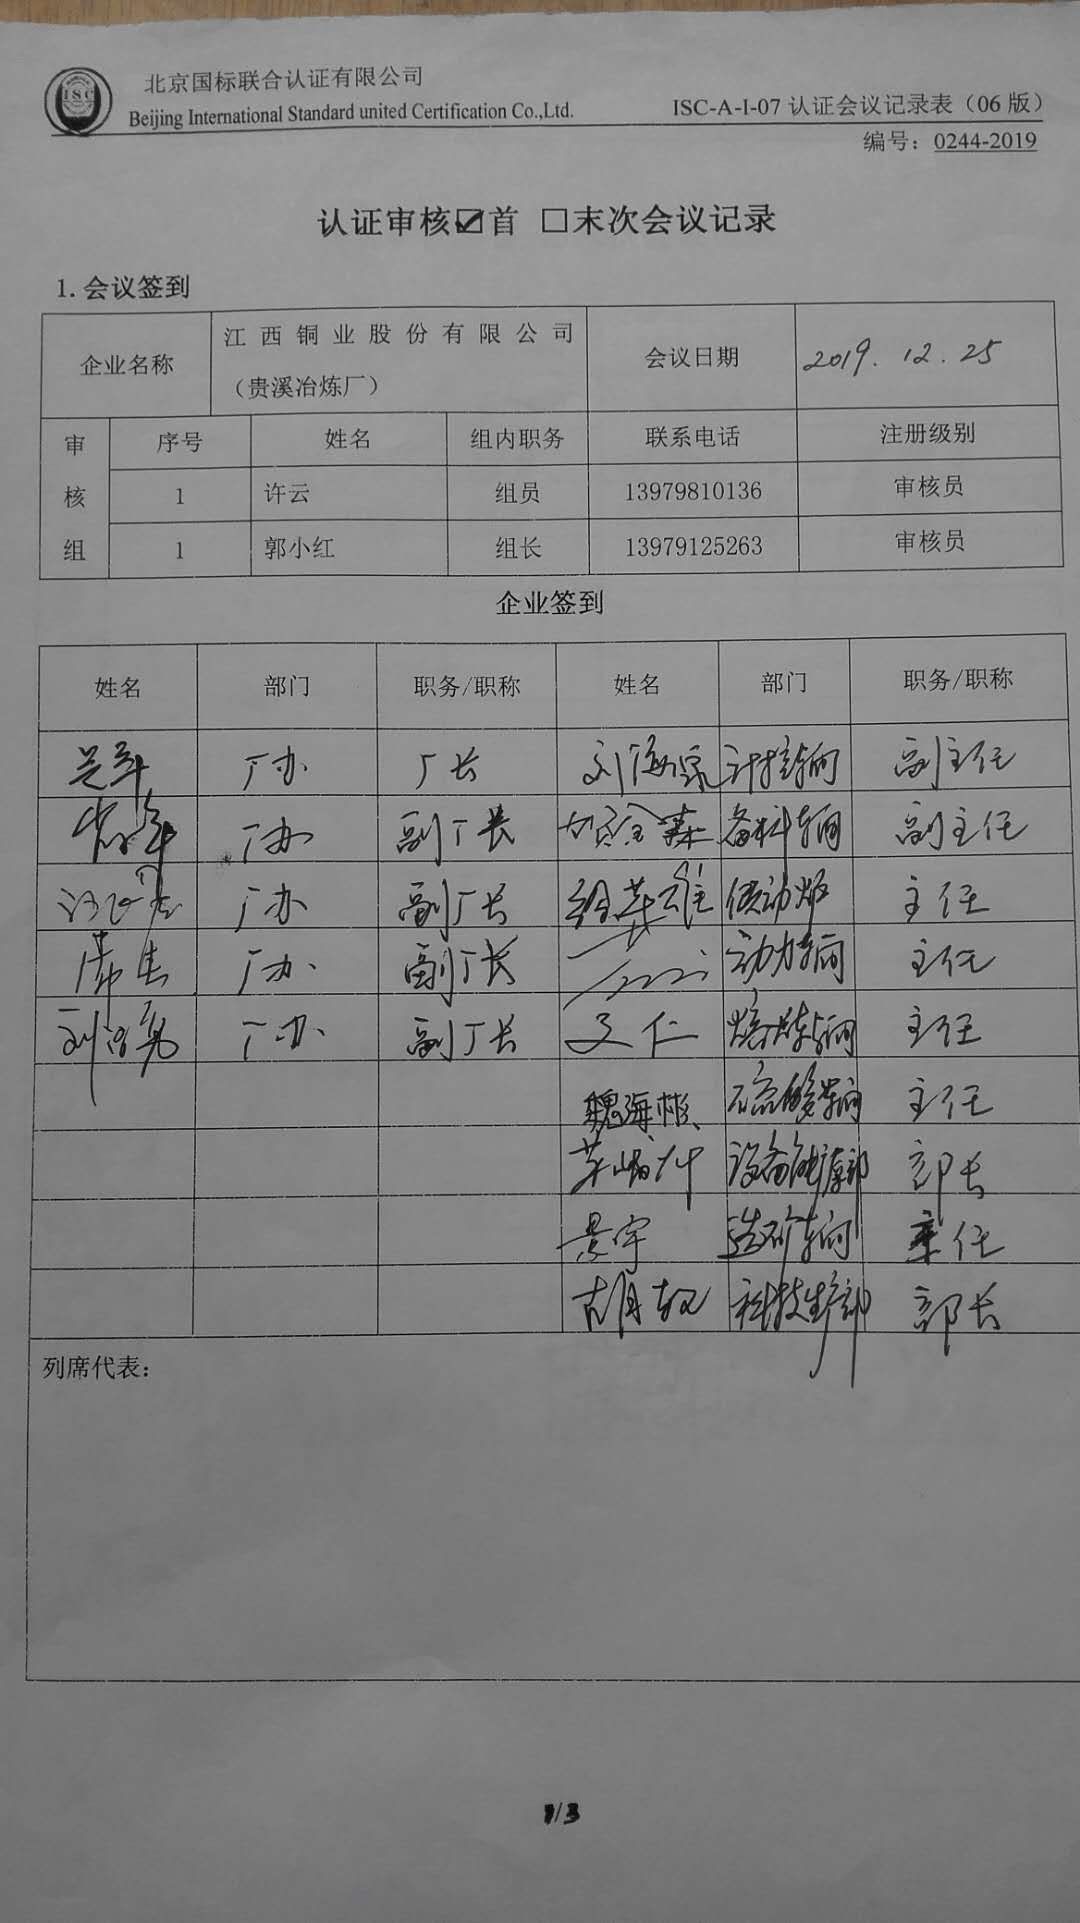 ISC
北京国标联合认证有限公司
Beijing International Standard united Certification Co.,Ltd.
ISC-A-I-07 认证会议记录表（06 版）
编号：0244-2019
认证审核☑首 □末次会议记录
1. 会议签到
企业名称 江西铜业股份有限公司（贵溪冶炼厂） 会议日期 2019.12.25
审核组 序号 姓名 组内职务 联系电话 注册级别
1 许云 组员 13979810136 审核员
1 郭小红 组长 13979125263 审核员
企业签到
姓名 部门 职务/职称 姓名 部门 职务/职称
厂办 厂长 计控车间 副主任
厂办 副厂长 备料车间 副主任
厂办 副厂长 倾动炉 主任
厂办 副厂长 动力车间 主任
厂办 副厂长 文仁 熔炼车间 主任
魏海彬 硫酸车间 主任
设备能源部 部长
景宇 选矿车间 主任
科技生产部 部长
列席代表：
1/3